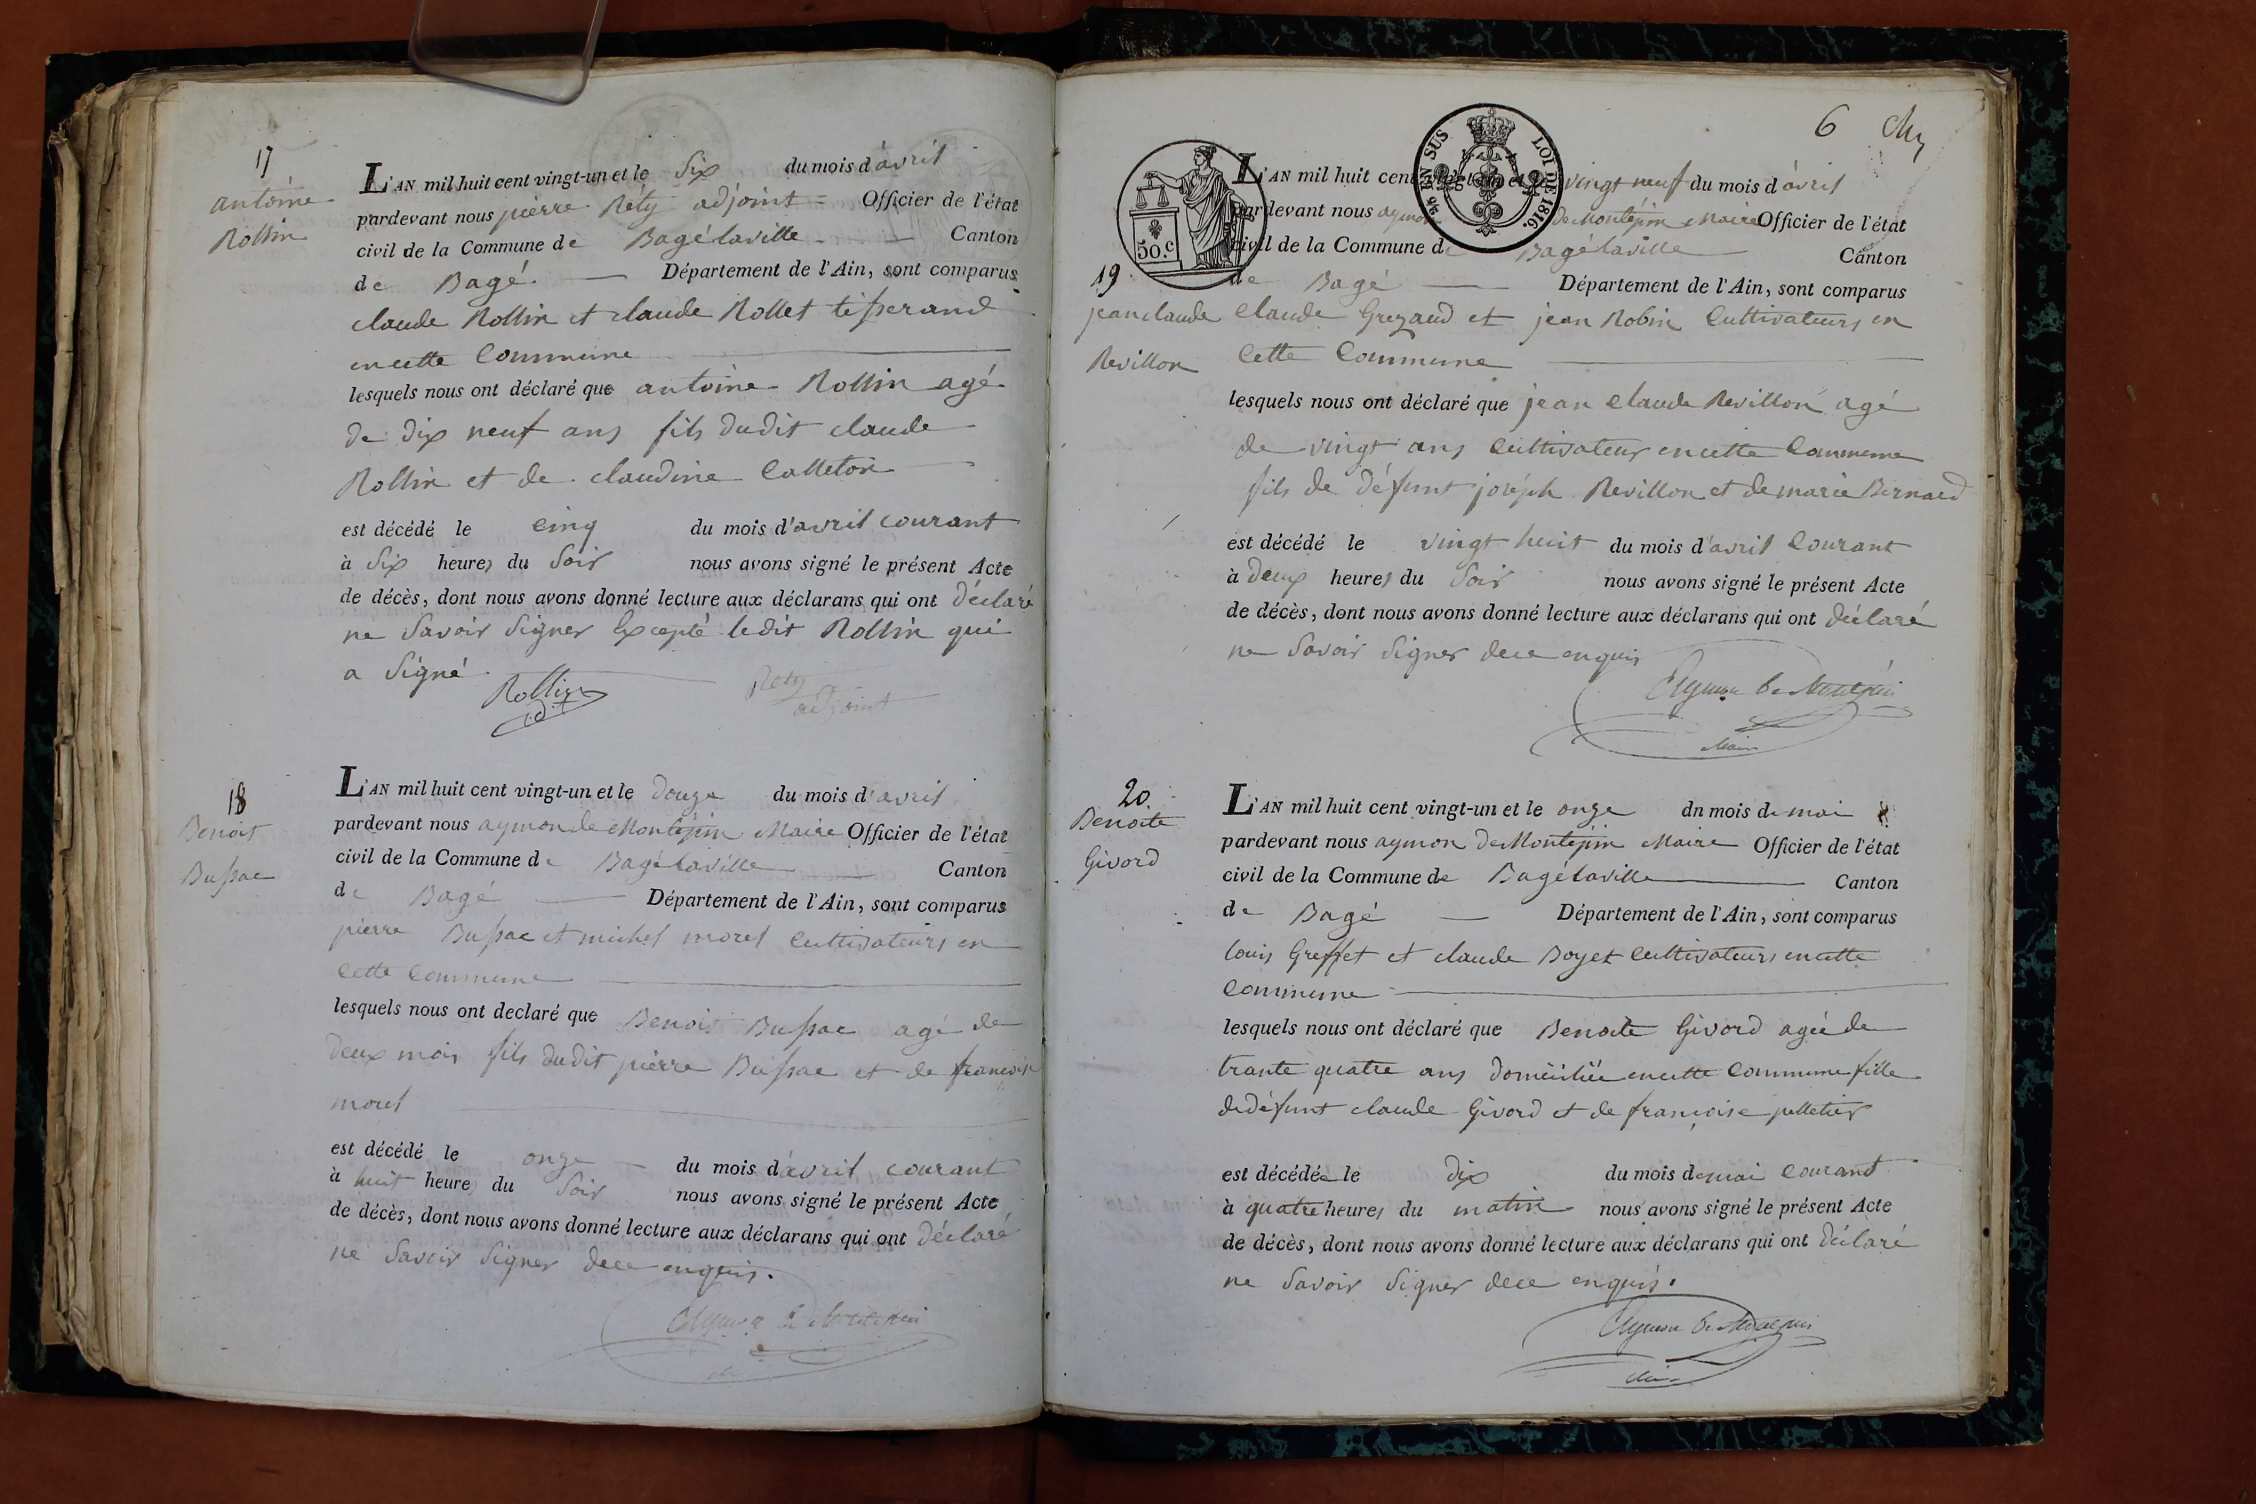 17
antoine
Rollin
L'AN mil huit cent vingt-un et le Six du mois d'avril
pardevant nous pierre Réty adjoint Officier de l'état
civil de la Commune de Bagélaville Canton
de Bagé Département de l'Ain, sont comparus
claude Rollin et claude Rollet tisserand
en cette Commune
lesquels nous ont déclaré que antoine Rollin agé
de dix neuf ans fils dudit claude
Rollin et de claudine Calleton
est décédé le cinq du mois d'avril courant
à Six heures du Soir nous avons signé le présent Acte
de décès, dont nous avons donné lecture aux déclarans qui ont déclaré
ne Savoir Signer Excepté ledit Rollin qui
a Signé
Rollin
Rety
adjoint
18
Benoit
Bussac
L'AN mil huit cent vingt-un et le douze du mois d'avril
pardevant nous aymon de Montépin Maire Officier de l'état
civil de la Commune de Bagélaville Canton
de Bagé Département de l'Ain, sont comparus
pierre Bussac et michel morel Cultivateurs en
Cette Commune
lesquels nous ont declaré que Benoit Bussac agé de
deux mois fils dudit pierre Bussac et de francoise
morel
est décédé le onze du mois d'avril courant
à huit heures du Soir nous avons signé le présent Acte
de décès, dont nous avons donné lecture aux déclarans qui ont déclaré
ne Savoir Signer dece enquis.
Aymon de Montépin
6
50.c
25 EN SUS
LOI DE 1816.
19
jean claude
Revillon
L'AN mil huit cent vingt-un et le vingt neuf du mois d'avril
pardevant nous aymon de Montépin Maire Officier de l'état
civil de la Commune de Bagélaville Canton
de Bagé Département de l'Ain, sont comparus
Claude Grezaud et jean Robin Cultivateurs en
Cette Commune
lesquels nous ont déclaré que jean Claude Revillon agé
de vingt ans Cultivateur en cette Commune
fils de défunt joséph Revillon et de marie Bernard
est décédé le vingt huit du mois d'avril Courant
à deux heures du Soir nous avons signé le présent Acte
de décès, dont nous avons donné lecture aux déclarans qui ont déclaré
ne Savoir Signer dece enquis
Aymon de Montépin
Maire
20
Benoite
Givord
L'AN mil huit cent vingt-un et le onze dn mois de mai
pardevant nous aymon de Montépin Maire Officier de l'état
civil de la Commune de Bagélaville Canton
de Bagé Département de l'Ain, sont comparus
louis Greffet et claude Boyer Cultivateurs en cette
Commune
lesquels nous ont déclaré que Benoite Givord agée de
trante quatre ans domiciliée en cette Commune fille
de défunt claude Givord et de françoise pelletier
est décédée le dix du mois de mai Courant
à quatre heures du matin nous avons signé le présent Acte
de décès, dont nous avons donné lecture aux déclarans qui ont déclaré
ne Savoir Signer dece enquis.
Aymon de Montépin
Maire